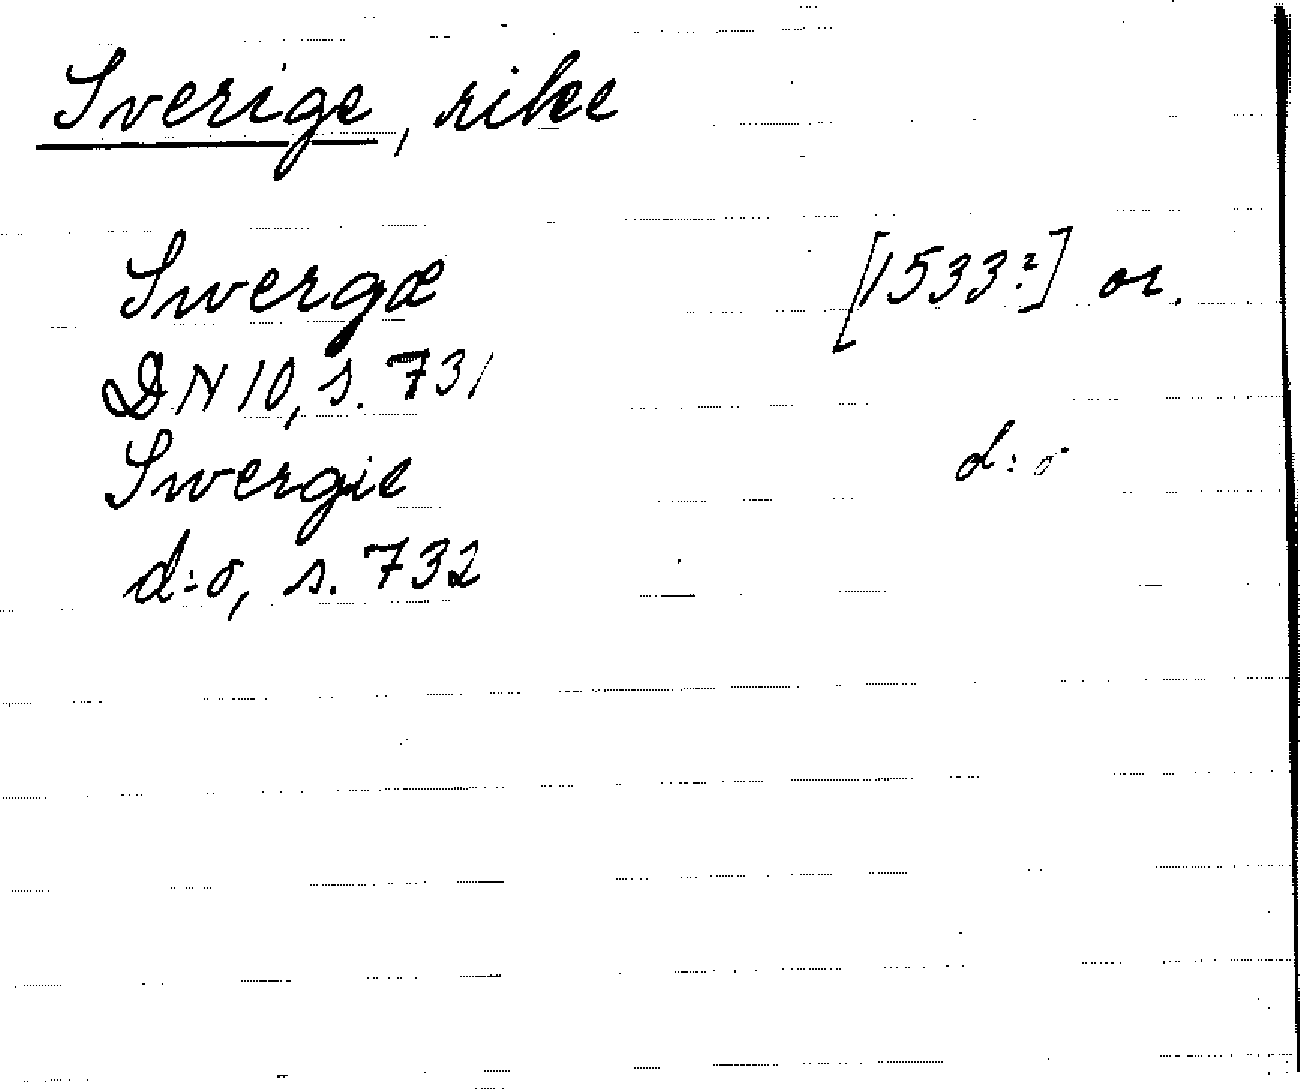 Sverige, rike
Swergæ [1533?] or.
DN 10, s. 731
Swergie d:o
d:o, s. 732